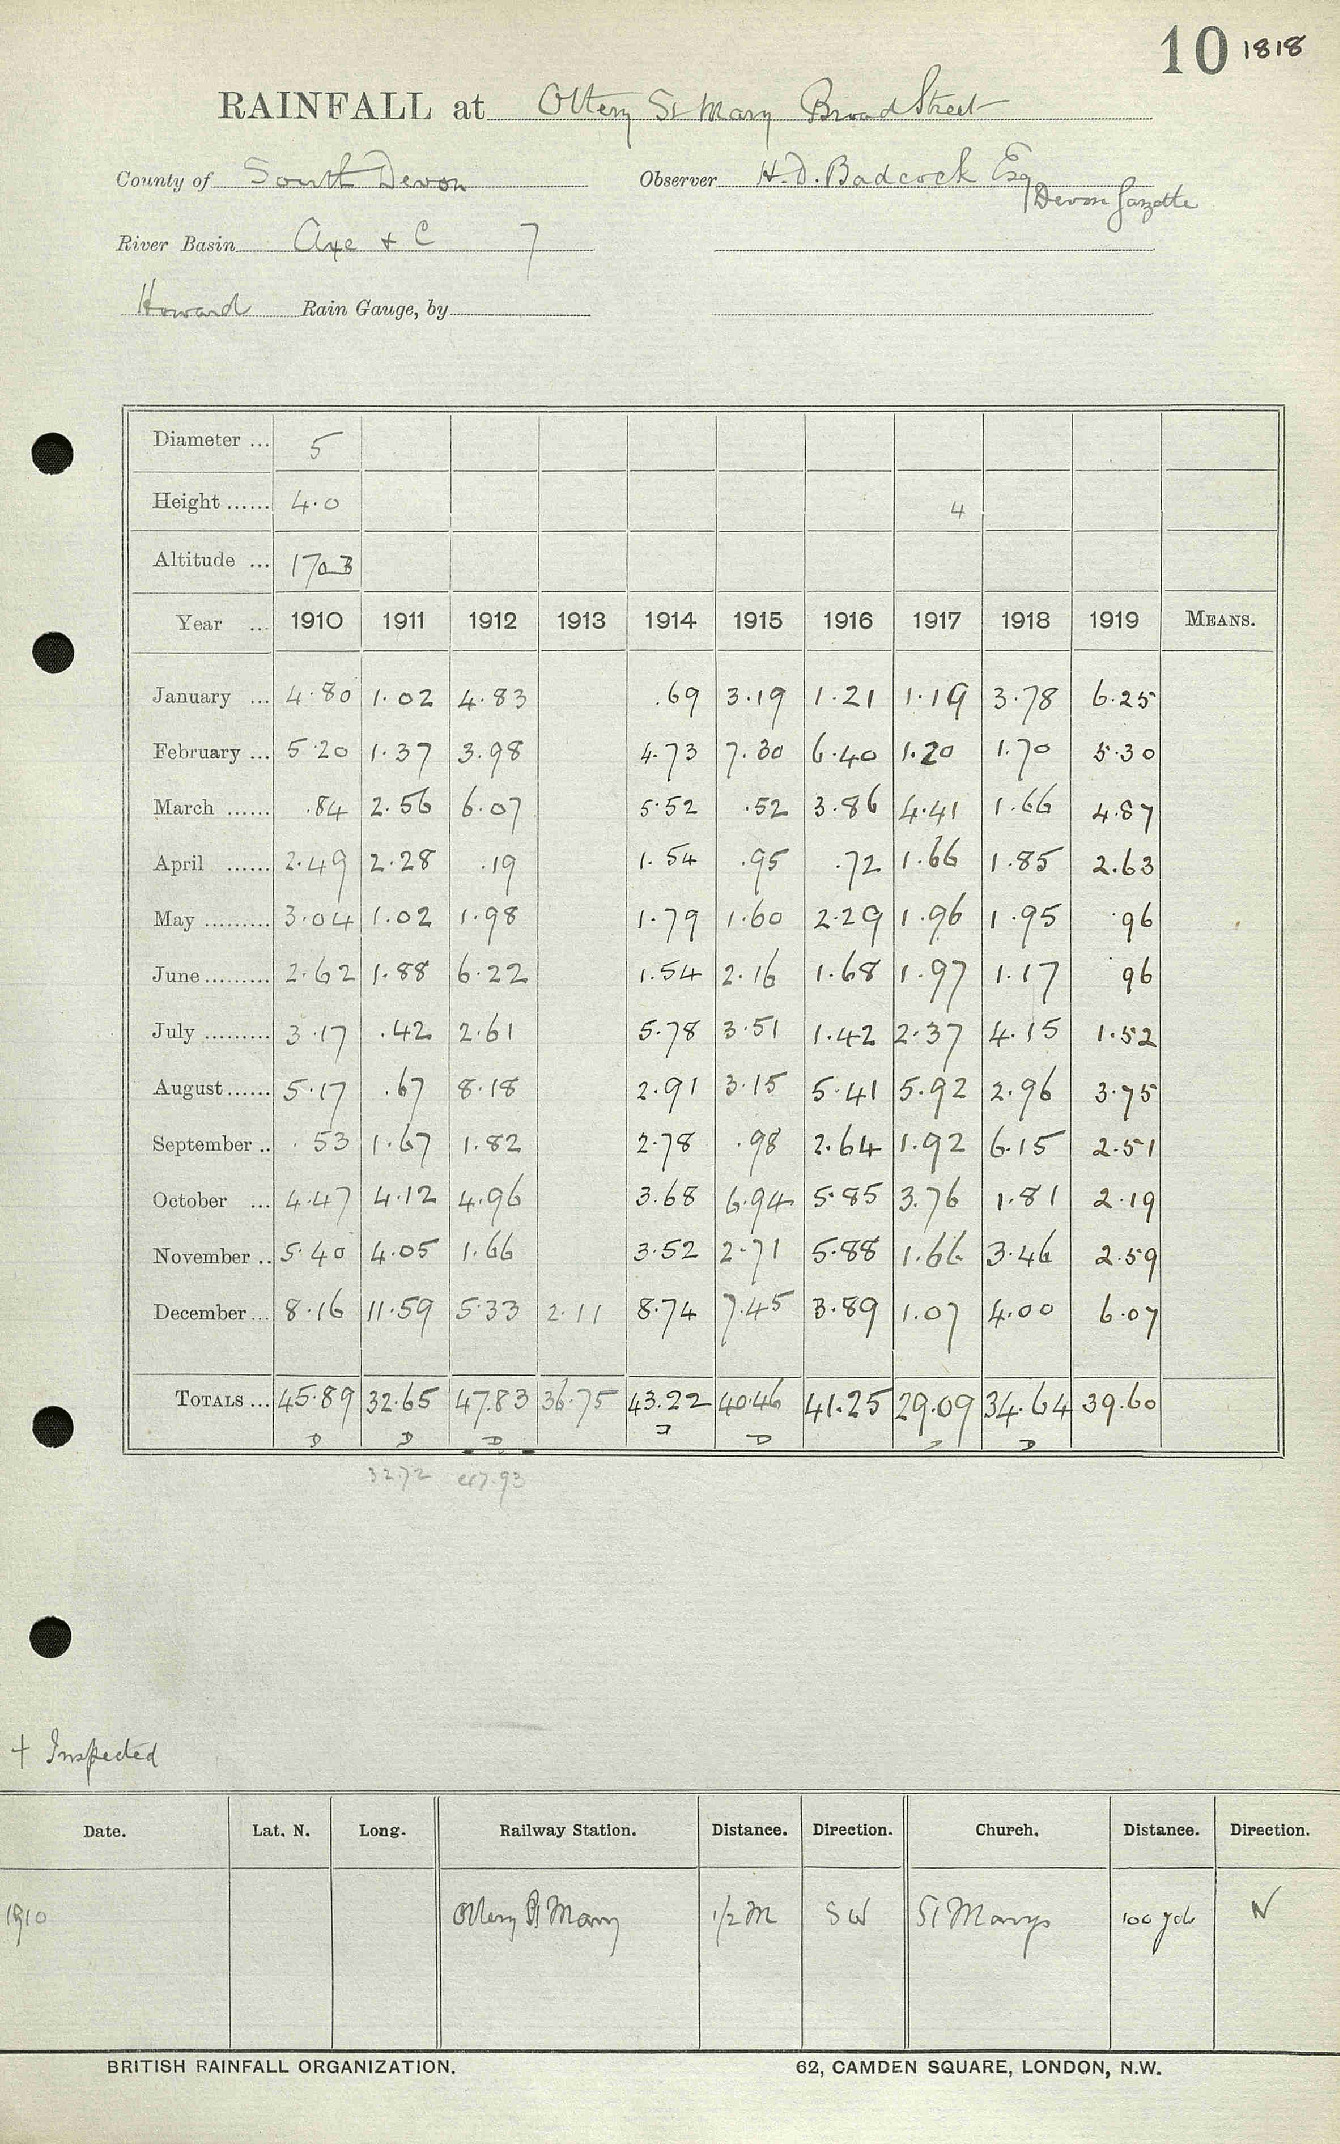 10 1818
RAINFALL at Ottery St Mary Broad Street
County of South Devon Observer H. D. Badcock Esq
/Devon Gazette
River Basin Axe + C 7
Howard Rain Gauge, by
Diameter ... 5
Height ...... 4.0 4
Altitude ... 170
Year ... 1910 1911 1912 1913 1914 1915 1916 1917 1918 1919 MEANS.
January ... 4.80 1.02 4.83 .69 3.19 1.21 1.19 3.78 6.25
February ... 5.20 1.37 3.98 4.73 7.30 6.40 1.20 1.70 5.30
March ...... .84 2.56 6.07 5.52 .52 3.86 4.41 1.66 4.87
April ...... 2.49 2.28 .19 1.54 .95 .72 1.66 1.85 2.63
May ......... 3.04 1.02 1.98 1.79 1.60 2.29 1.96 1.95 .96
June ......... 2.62 1.88 6.22 1.54 2.16 1.68 1.97 1.17 96
July ......... 3.17 .42 2.61 5.78 3.51 1.42 2.37 4.15 1.52
August ...... 5.17 .67 8.18 2.91 3.15 5.41 5.92 2.96 3.75
September .. .53 1.67 1.82 2.78 .98 2.64 1.92 6.15 2.51
October ... 4.47 4.12 4.96 3.68 6.94 5.85 3.76 1.81 2.19
November .. 5.40 4.05 1.66 3.52 2.71 5.88 1.66 3.46 2.59
December ... 8.16 11.59 5.33 2.11 8.74 7.45 3.89 1.07 4.00 6.07
TOTALS ... 45.89 32.65 47.83 36.75 43.22 40.46 41.25 29.09 34.64 39.60
D D D D D D D
32.72 47.93
+ Inspected
Date. Lat. N. Long. Railway Station. Distance. Direction. Church. Distance. Direction.
1910 Ottery St Mary 1/2 M SW St Marys 100 yds N
BRITISH RAINFALL ORGANIZATION. 62, CAMDEN SQUARE, LONDON, N.W.